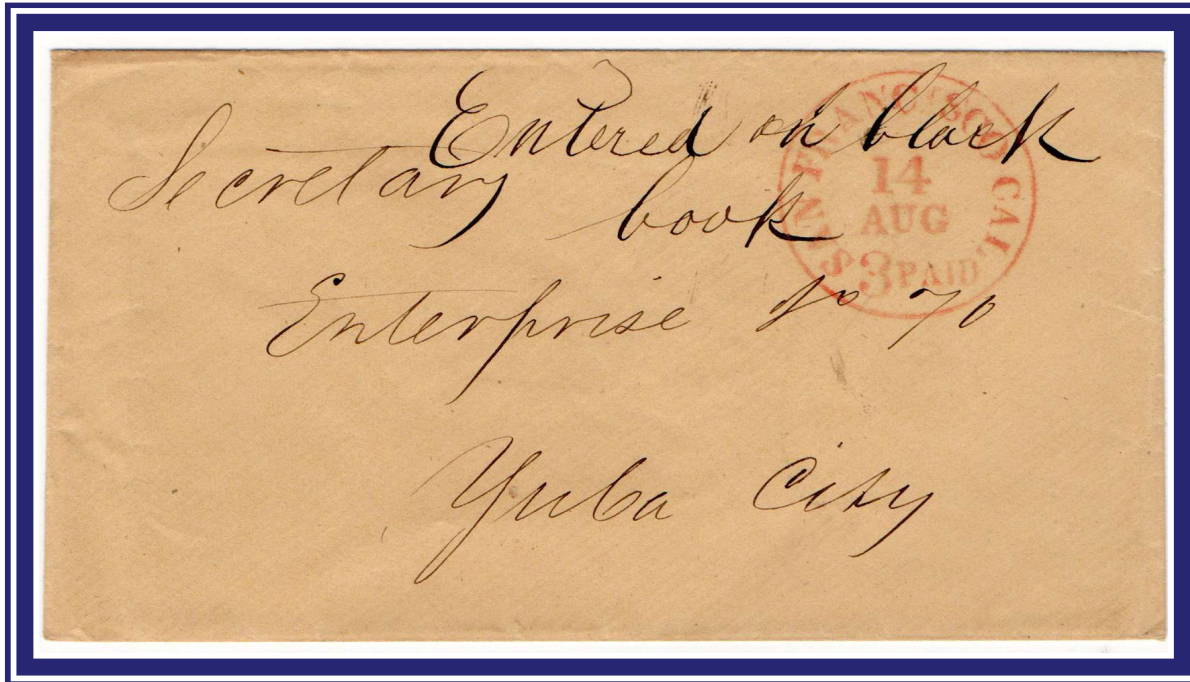 Entered on black
book
Secretary
Enterprise No 70
Yuba City
SAN FRANCISCO CAL.
14
AUG
3 PAID